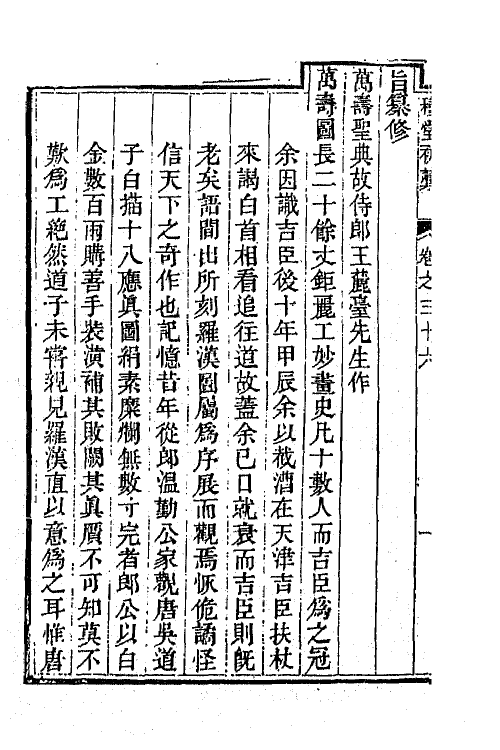 穆堂初藁 卷之三十六 一
旨纂修
萬壽聖典故侍郎王麓臺先生作
萬壽圖長二十餘丈鉅麗工妙畫史凡十數人而吉臣為之冠
余因識吉臣後十年甲辰余以截漕在天津吉臣扶杖
來謁白首相看追往道故蓋余已日就衰而吉臣則旣
老矣語間出所刻羅漢圖屬為序展而觀焉恢佹譎怪
信天下之奇作也記憶昔年從郎溫勤公家觀唐吳道
子白描十八應眞圖絹素糜爛無數寸完者郎公以白
金數百兩購善手裝潢補其敗闕其眞贋不可知莫不
歎為工絶然道子未甞親見羅漢直以意為之耳惟唐